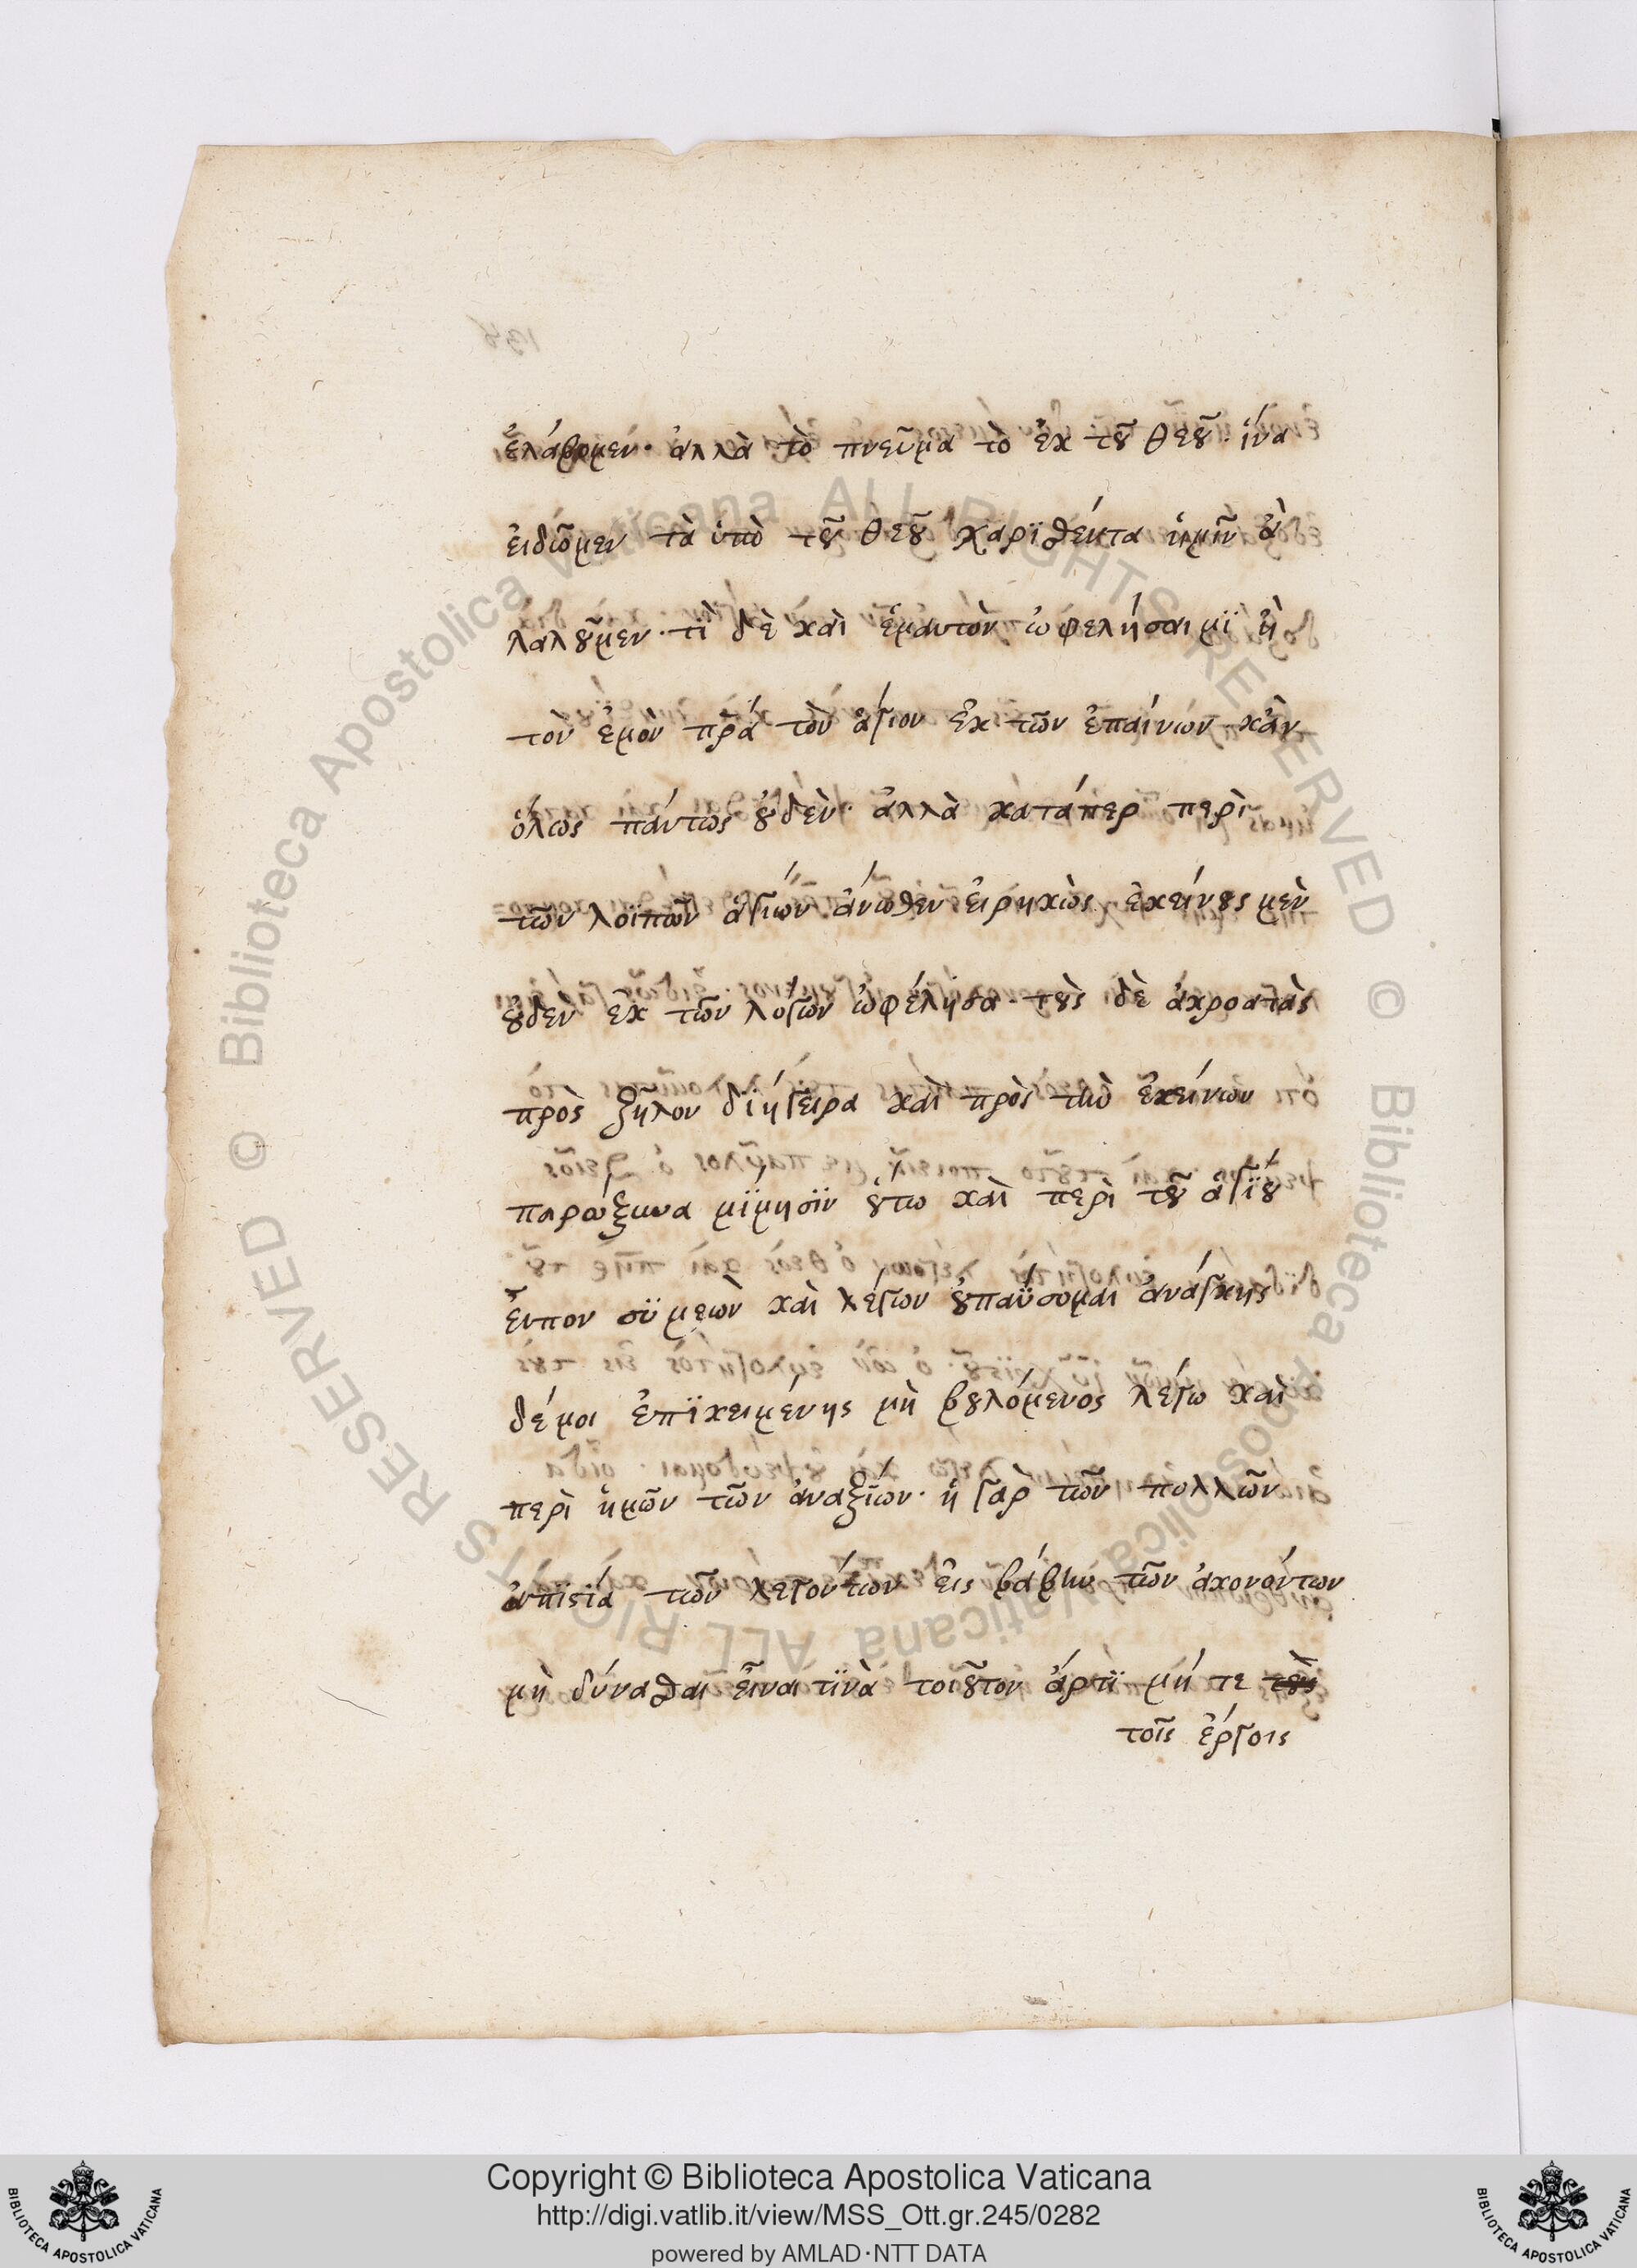 ἐλάβομεν· ἀλλὰ τὸ πνεῦμα τὸ ἐκ τοῦ θεοῦ· ἵνα
εἰδῶμεν τὰ ὑπὸ τοῦ θεοῦ χαρϊσθέντα ἡμῖν ἃ
λαλοῦμεν· τὶ δὲ καὶ ἐμαυτὸν ὠφελήσαιμϊ ἢ
τὸν ἐμὸν πρ̅α τὸν ἅγιον ἐκ τῶν ἐπαίνων κἂν
ὅλως πάντως οὐδὲν· ἀλλὰ κατάπερ περὶ
τῶν λοϊπῶν ἁγίων ἄνωθεν εἰρηκὼς ἐκείνους μὲν
οὐδὲν ἐκ τῶν λόγων ὠφέλησα· τοὺς δὲ ἀκροατὰς
πρὸς ζῆλον δϊήγειρα καὶ πρὸς τὴν ἐκείνων
παρώξυνα μϊμησϊν οὕτω καὶ περὶ τοῦ ἁγίου
εἶπον σϋμεὼν καὶ λέγων οὐ παύσομαι ἀνάγκης
δέ μοι ἐπϊκειμένης μὴ βουλόμενος λέγω καὶ
περὶ ἡμῶν τῶν ἀναξίων· ἡ γὰρ τῶν πολλῶν
ἀπϊστία τῶν λεγόντων εἰς βάβην τῶν ἀκουόντων
μὴ δύνασθαι εἶναι τϊνὰ τοιοῦτον ἄρτϊ μή τε τοὺς
τοῖς ἔργοις
Copyright © Biblioteca Apostolica Vaticana
http://digi.vatlib.it/view/MSS_Ott.gr.245/0282
powered by AMLAD·NTT DATA
BIBLIOTECA APOSTOLICA VATICANA
BIBLIOTECA APOSTOLICA VATICANA
© Biblioteca Apostolica Vaticana ALL RIGHTS RESERVED © Biblioteca Apostolica Vaticana ALL RIGHTS RESERVED